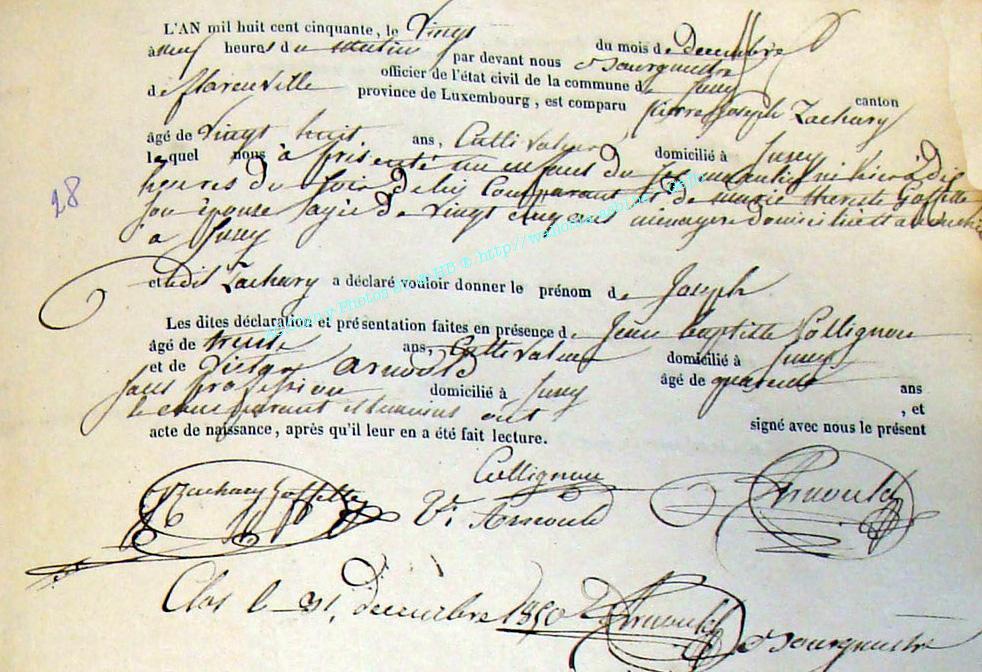 L'AN mil huit cent cinquante, le Vingt du mois de decembre
à neuf heures du matin par devant nous Bourgmestre
officier de l'état civil de la commune de Jusey canton
de florenville province de Luxembourg, est comparu pierre Joseph Zachary
âgé de Vingt huit ans, Cultivateur domicilié à Jusey
lequel nous à présenté un enfant du sex masculin né hier à dix
heures du soir de lui Comparant et de marie therese Goffette
son épouse agée de Vingt cinq ans ménagere domiciliée
à Jusey
28
et ledit Zachary a déclaré vouloir donner le prénom de Joseph
Les dites déclaration et présentation faites en présence de Jean baptiste Collignon
âgé de trente ans, Cultivateur domicilié à Jusey
et de Victor Arnould âgé de quarente ans
sans profession domicilié à Jusey , et
le comparant et temoins ont signé avec nous le présent
acte de naissance, après qu'il leur en a été fait lecture.
Zachary Goffette Collignon Arnould
V. Arnould
Clos le 31 decembre 1850 Arnould Bourgmestre